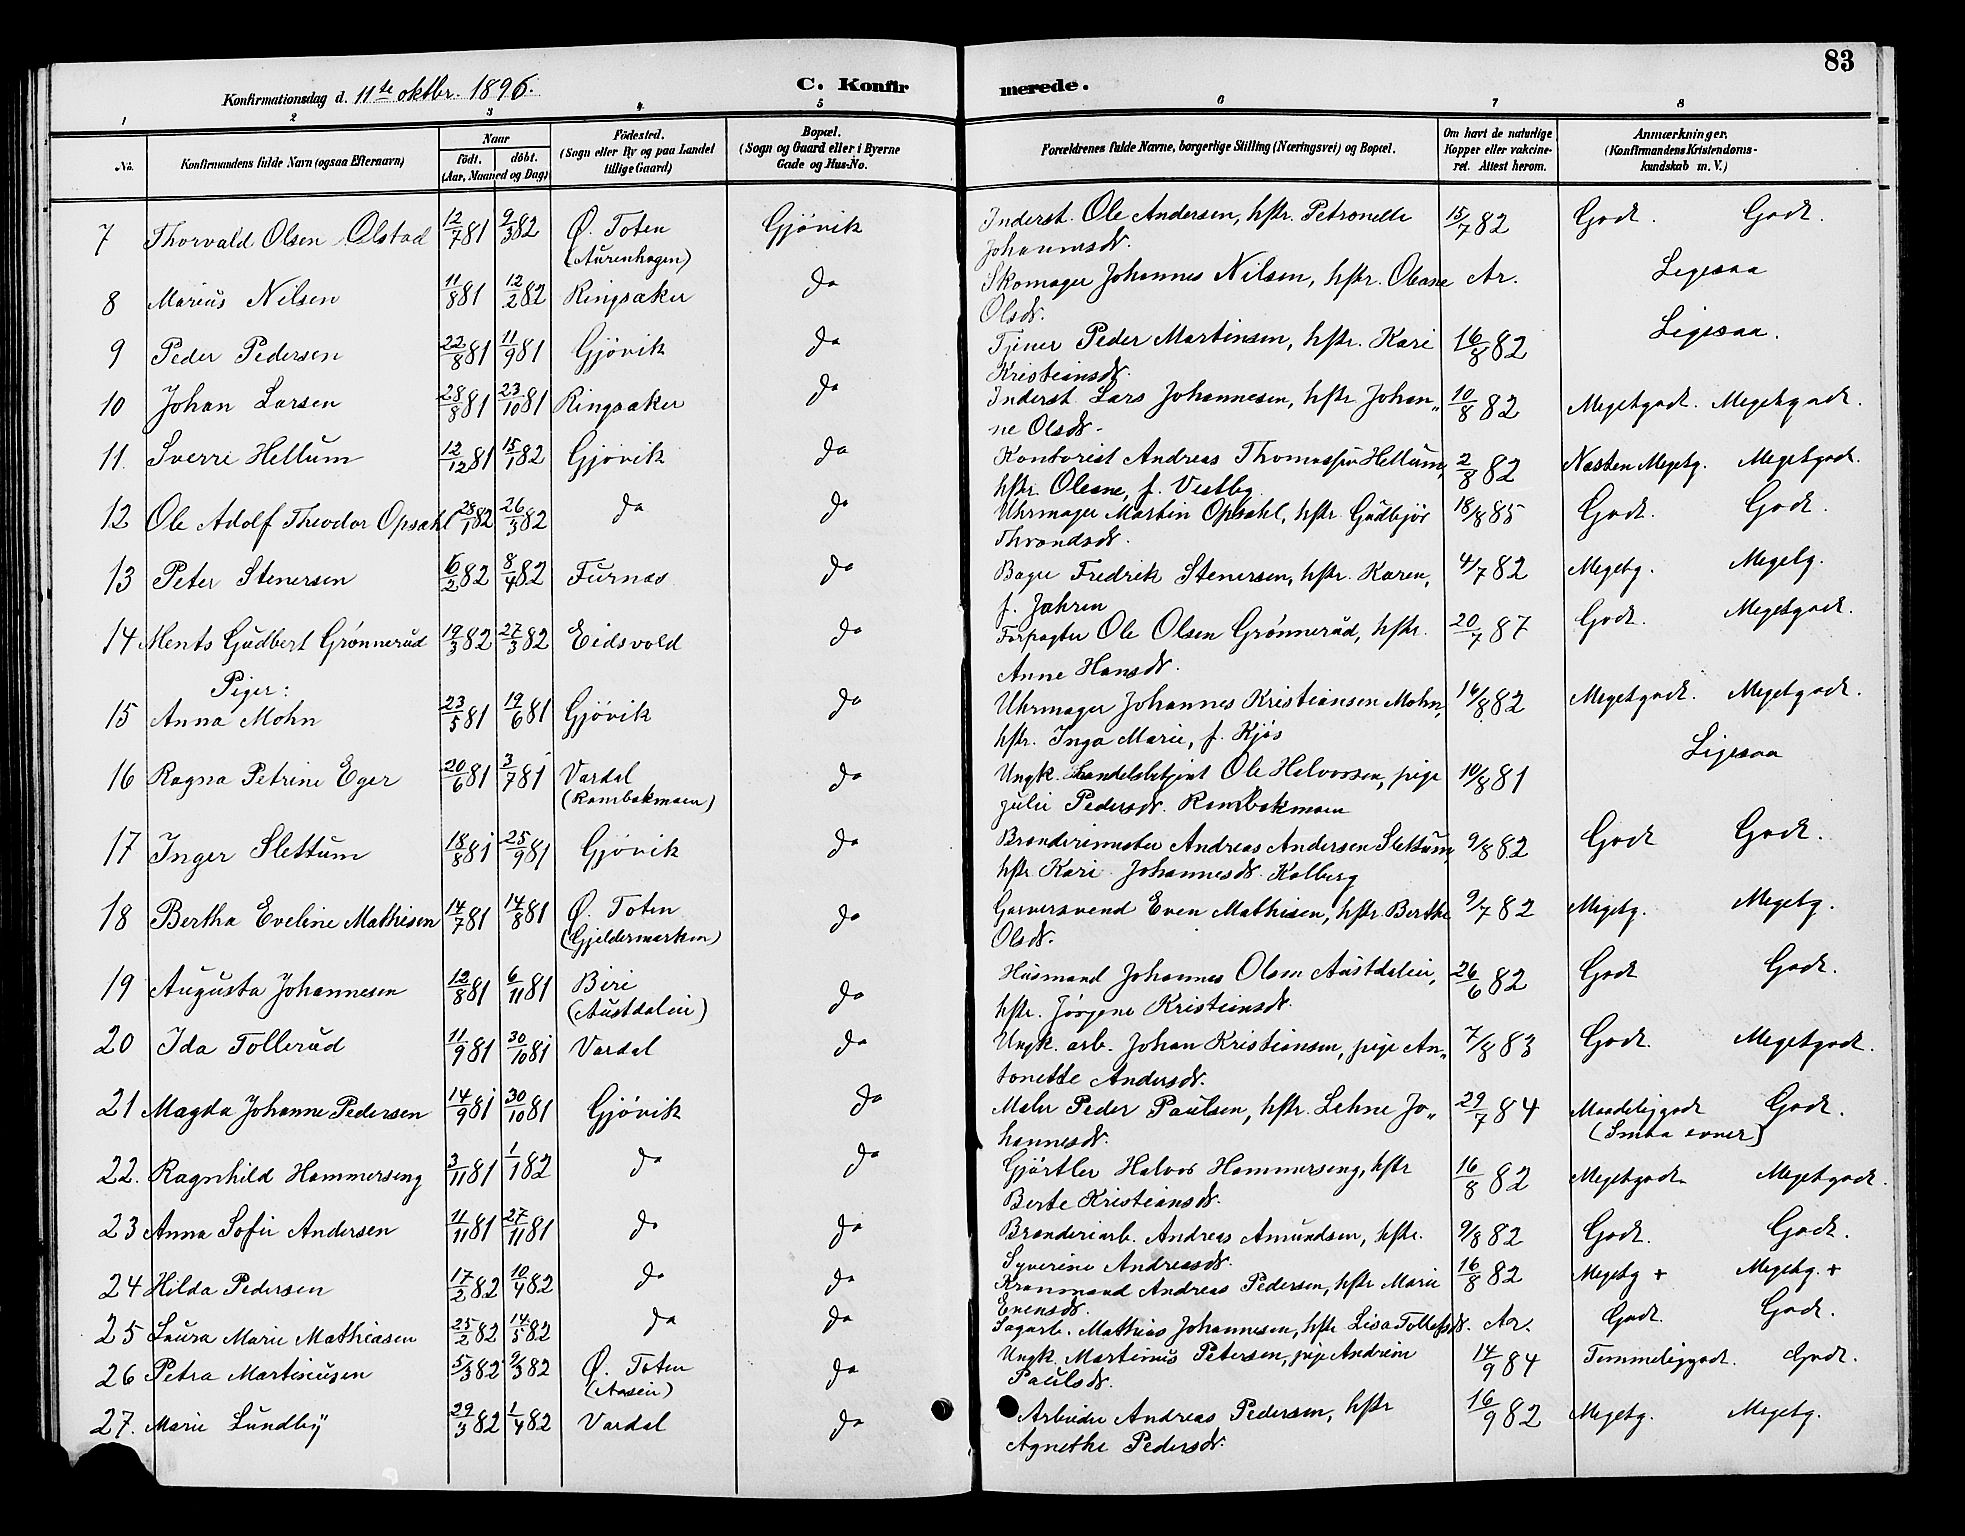 83
Konfirmationsdag d. 11te oktbr. 1896. C. Konfirmerede.
1 2 3 4 5 6 7 8
No. Konfirmandens fulde Navn (ogsaa Efternavn) Naar födt. döbt. (Aar, Maaned og Dag) Födested. (Sogn eller By og paa Landet tillige Gaard) Bopæl. (Sogn og Gaard eller i Byerne Gade og Hus-No. Forældrenes fulde Navne, borgerlige Stilling (Næringsvei) og Bopæl. Om havt de naturlige Kopper eller vakcineret. Attest herom. Anmærkninger. (Konfirmandens Kristendomskundskab m. V.)
7 Thorvald Olsen Olstad 12/7 81 9/3 82 Ø. Toten (Aurenhagen) Gjövik Inderst. Ole Andersen, hstr. Petronelle Johannesdr. 15/7 82 Godt. Godt.
8 Marius Nilsen 11/8 81 12/2 82 Ringsaker do Skomager Johannes Nilsen, hstr. Oleane Olsdr. Ar. Ligesaa
9 Peder Pedersen 22/8 81 11/9 81 Gjövik do Tjener Peder Martinsen, hstr. Kari Kristiansdr. 16/8 82 Ligesaa.
10 Johan Larsen 28/8 81 23/10 81 Ringsaker do Inderst. Lars Johannesen, hstr Johan„ne Olsdr. 10/8 82 Megetgodt. Megetgodt.
11. Sverre Hellum 12/12 81 15/1 82 Gjövik do Kontorist Andreas Thomassen Hellum, hstr. Oleane, f. Vestby 2/8 82 Næsten Megetg. Megetgodt.
12 Ole Adolf Theodor Opsahl 28/1 82 26/3 82 do do Uhrmager Martin Opsahl, hstr. Gudbjör Throndsdr. 18/8 85 Godt. Godt.
13 Peter Stenersen 6/2 82 8/4 82 Furnæs do Bager Fredrik Stenersen, hstr. Karen, f. Jahren 4/7 82 Megetg. Megetg.
14 Ments Gudbert Grønnerud 19/3 82 27/3 82 Eidsvold do Forpagter Ole Olsen Grønnerud, hstr. Anne Hansdr. 20/7 87 Godt. Megetgodt.
Piger:
15 Anna Mohn 23/5 81 19/6 81 Gjövik do Uhrmager Johannes Kristiansen Mohn, hstr. Inga Marie, f. Kjös 16/8 82 Megetgodt. Megetgodt.
16 Ragna Petrine Eger 20/6 81 3/7 81 Vardal (Rambekmoen) do Ungk. Handelsbetjent Ole Halvorsen, pige Julie Pedersdr. Rambekmoen 10/8 81 Ligesaa
17 Inger Slettum 18/8 81 25/9 81 Gjövik do Brænderimester Andreas Andersen Slettum, hstr Kari Johannesdr. Kolberg 9/8 82 Godt Godt.
18 Bertha Eveline Mathisen 14/7 81 14/8 81 Ø. Toten (Gjeldermarken) do Garversvend Even Mathisen, hstr Berthe Olsdr. 9/7 82 Megetg. Megetg.
19 Augusta Johannesen 12/8 81 6/11 81 Biri (Austdaleie) do Husmand Johannes Olsen Austdaleie, hstr. Jörgene Kristiansdr. 26/6 82 Godt Godt.
20 Ida Tollerud 11/9 81 30/10 81 Vardal do Ungk. arb. Johan Kristiansen, pige An„tonette Andersdr. 7/8 83 Godt. Megetgodt.
21 Magda Johanne Pedersen 14/9 81 30/10 81 Gjövik do Maler Peder Paulsen, hstr. Lehne Jo„hannesdr. 29/7 84 Maadeliggodt (Smaa evner) Godt.
22. Ragnhild Hammerseng 3/11 81 1/1 82 do do Gjörtler Halvor Hammerseng, hstr Berte Kristiansdr. 16/8 82 Megetgodt. Megetgodt.
23 Anna Sofie Andersen 11/11 81 27/11 81 do do Brænderiarb. Andreas Amundsen, hstr. Syverine Andreasdr. 9/8 82 Godt. Godt.
24 Hilda Pedersen 17/2 82 10/4 82 do do Andreas Pedersen, hstr Marie Evensdr. 16/8 82 Megetg + Megetg. +
25 Laura Marie Mathiasen 25/2 82 14/5 82 do do Sagarb. Mathias Johannesen, hstr Lisa Tollefsdr. Ar. Godt. Godt.
26 Petra Martiniusen 5/3 82 9/3 82 Ø. Toten (Aaseie) do Ungk. Martinus Petersen, pige Andrine Paulsdr. 14/9 84 Temmeliggodt. Godt.
27. Marie Lundby 29/3 82 1/4 82 Vardal do Arbeider Andreas Pedersen, hstr Agnethe Pedersdr. 16/9 82 Megetg. Megetg.